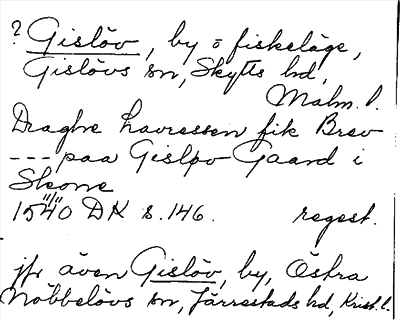 ? Gislöv, by o fiskeläge,
Gislövs sn, Skytts hd,
Malm. l.
Draghe Lavressen fik Brev
--- paa Gisløv Gaard i
Skone
11/11
1540 DK s. 146. regest.
jfr även Gislöv, by, Östra
Nöbbelövs sn, Järrestads hd, Krist. l.